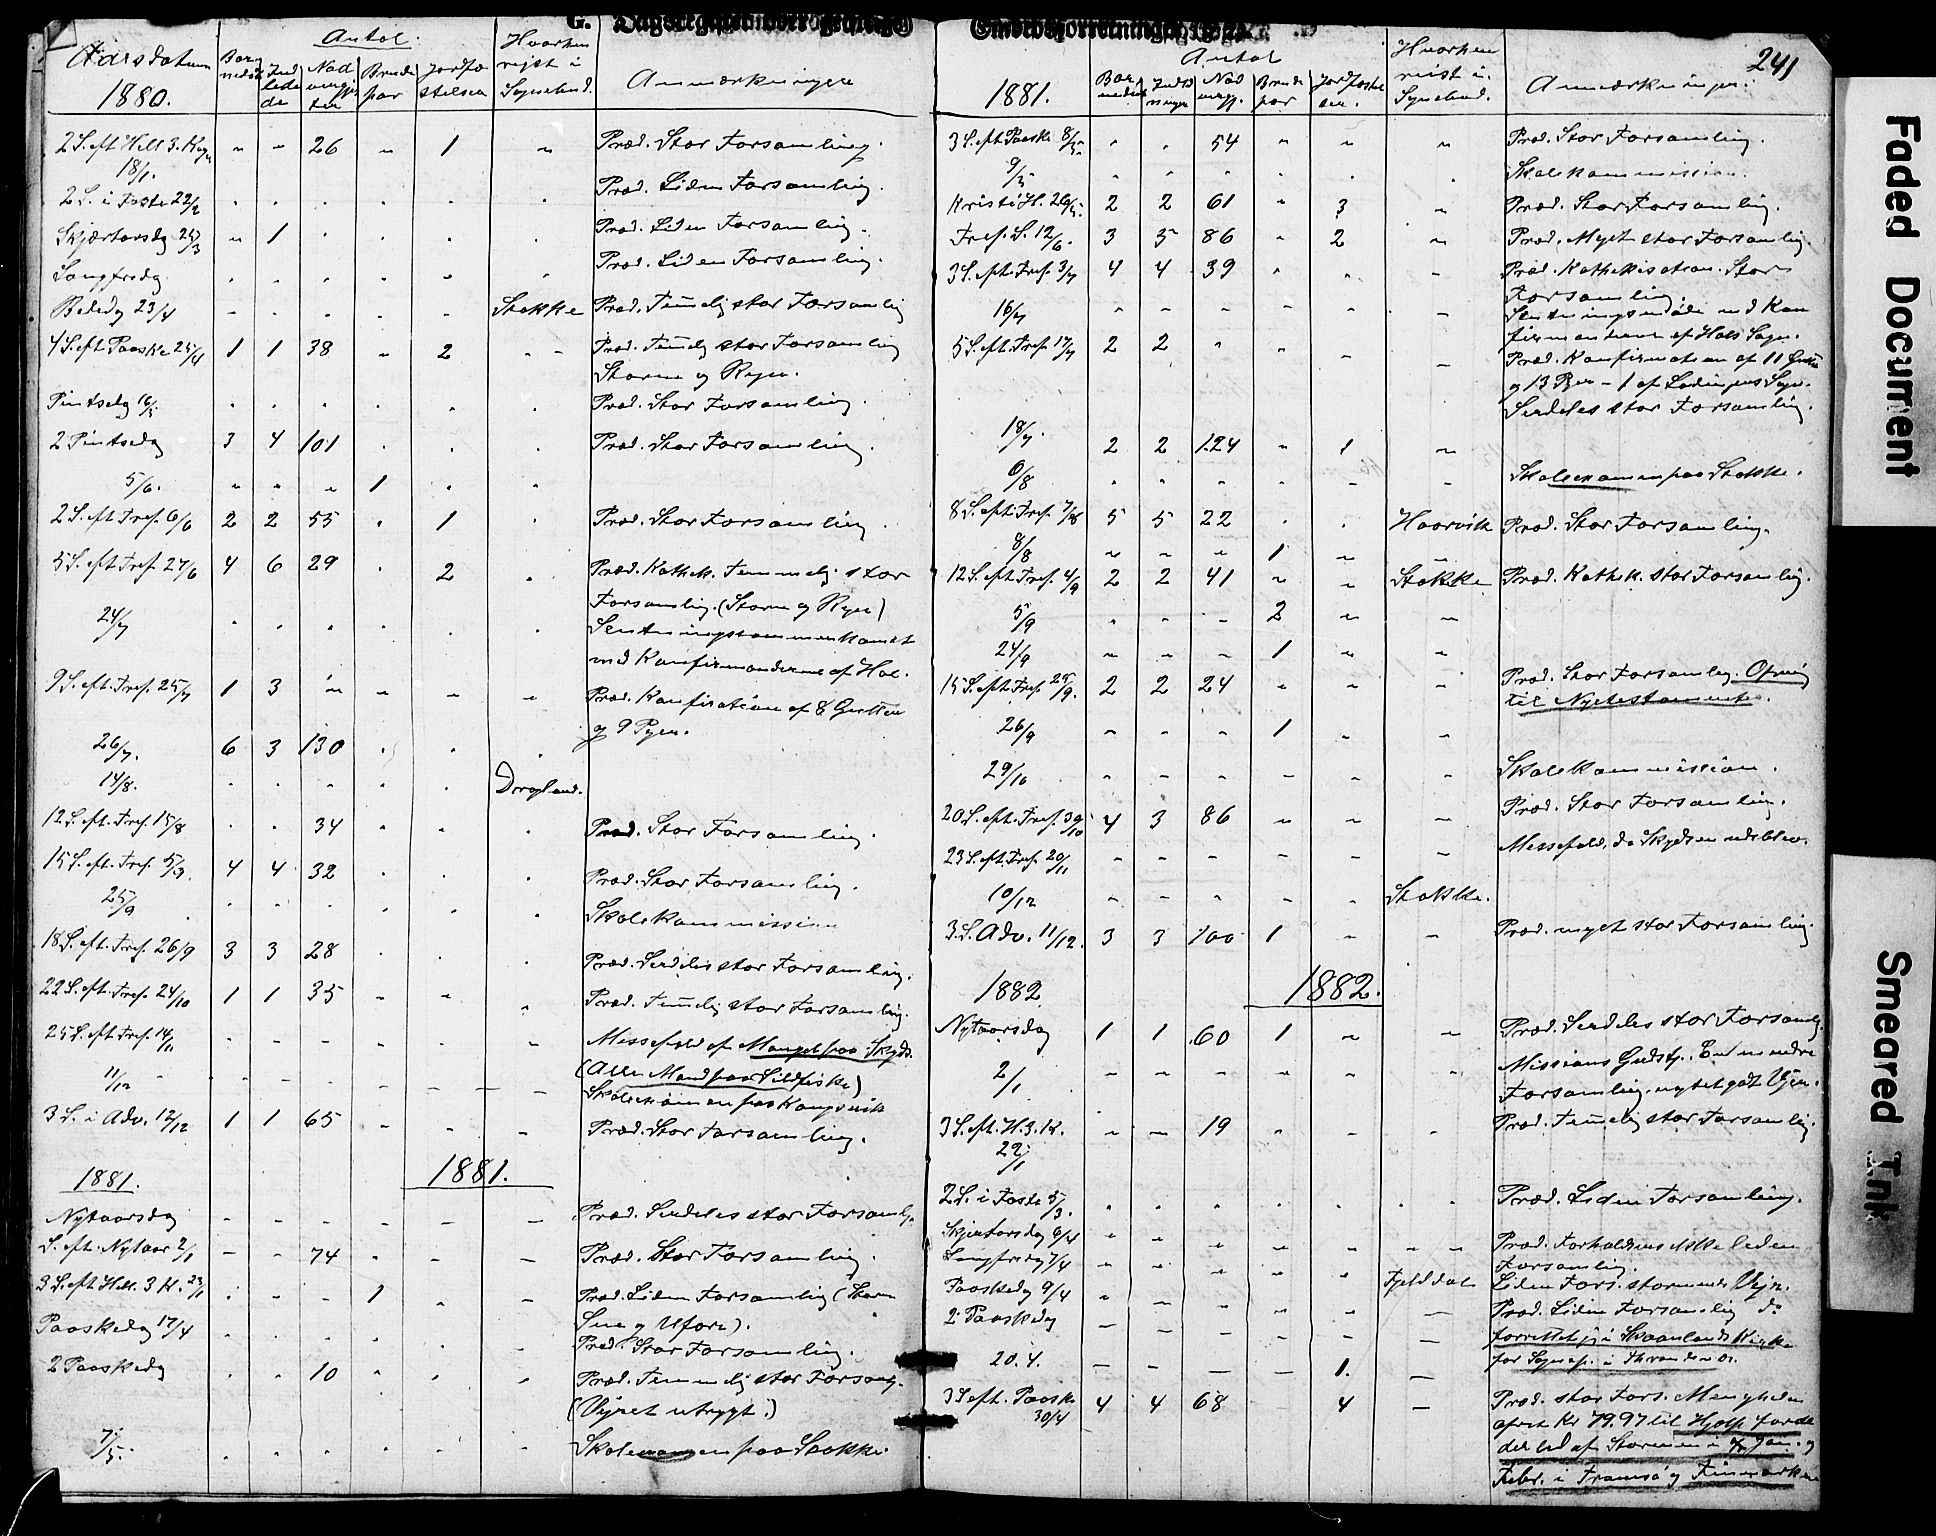 Aarsdatum Antal. Hvorhen reist i Sognebud. Anmærkninger
1880.
2 S. eft Hell 3. Kng 18/1. " " 26 " 1 " Præd. Stor Forsamling.
2 S. i Faste 22/2 Præd. Liden Forsamling.
Skjærtorsdg 25/3 " 1 Præd. Liden Forsamling.
Langfredg Præd. Liden Forsamling.
Bededg 23/4 Stokke Præd. Temelig stor Forsamling
4 S. eft Paaske 25/4 1 1 38 " 2 Præd. Temelig stor Forsamling
Storm og Regn.
Pintsedg 16/5 Præd. Stor Forsamling.
2 Pintsedg 3 4 101 Præd. Stor Forsamling.
5/6. " " " 1
2 S. eft Tref. 6/6 2 2 55 1 Præd. Stor Forsamling.
5 S. eft Tref. 27/6 4 6 29 2 Præd. Kathek. Temmelig stor
Forsamling. (Storm og Regn)
24/7 Slutningssammenkomst
med Konfirmanderne af Hol.
9 S. eft. Tref. 25/7 1 3 Præd. Konfirmation af 8 Gutter
og 9 Pger.
26/7. 6 3 130
14/8. Dragland.
12 S. eft. Tref. 15/8 34 Præd. Stor Forsamling.
15 S. eft. Tref. 5/9. 4 4 32 Præd. Stor Forsamling.
25/9 Skolekommission
18 S. eft. Tref. 26/9 3 3 28 Præd. Serdeles stor Forsamling.
22 S. eft. Tref. 24/10 1 1 35 Præd. Temelig stor Forsamling.
25 S. eft Tref. 14/11 Messefald af Mangel paa Skyds.
(Alle Mand paa Sildfiske)
11/12 Skoleexamen paa Kongsvik
3 S. i Adv. 12/12 1 1 65 Præd. Stor Forsamling.
1881. 1881.
Nytaarsdag Præd. Serdeles stor Forsamlg.
S. eft. Nytaar 2/1 74 Præd. Stor Forsamling.
3 S. eft Hell. 3 K. 23/1 1 Præd. Liden Forsamling (Storm
Sne og Ufore).
Paaskedag 17/4 Præd. Stor Forsamling.
2 Paaskedg 10 Præd. Temmelig stor Forsamg.
(Vejret utrygt.)
7/5. Skoleexamen paa Stokke.
241
1881. Antal Hvorhen reist i Sognebud. Anmærkninger.
3 S. eft Paaske 8/5 54 Præd. Stor Forsamling.
9/5 Skolekommission.
Kristi H. 26/5. 2 2 61 " 3 Præd. Stor Forsamling.
Tref. S. 12/6. 3 3 86 " 2 Præd. Myet stor Forsamling.
3 S. eft. Tref. 3/7 4 4 39 Præd. Kathekisation. Stor
Forsamling.
16/7 Slutningsmøde med Kon
firmanterne af Hols Sogn.
5 S. eft. Tref. 17/7 2 2 Præd. Konfirmation af 11 Gutter
og 13 Pger - 1 af Lødingens Sogn.
Serdeles stor Forsamling.
18/7. 2 2 124 " 1
6/8 Skoleexamen paa Stokke.
8 S. eft. Tref. 7/8 5 5 22 Haarvik Præd. Stor Forsamling.
8/8 1
12 S. eft Tref. 4/9 2 2 41 Stokke Præd. Kathek. stor Forsamling.
5/9 2
24/9 1
15 S. eft Tref 25/9. 2 2 24 Præd. Stor Forsamling. Ofring
til Nytestamente.
26/9 1
29/10 Skolekommission.
20 S. eft. Tref. 30/10 4 3 86 Præd. Stor Forsamling.
23 S. eft Tref 20/11 Messefald, da Skydsen udeblev.
10/12 Stokke.
3. S. Adv. 11/12. 3 3 100 1 Præd. myet stor Forsamling.
1882 1882.
Nytaarsdag 1 1 60 1 Præd. Serdeles stor Forsamlg.
2/1 Missions Gudstj. End mindre
Forsamling, uagtet godt Vejr.
3 S. eft. H. 3. K. 22/1 19 Præd. Temelig stor Forsamling.
2 S. i Faste 5/3. Præd. Liden Forsamling.
Skjertorsdag 6/4 Præd. Forholdsvis ikke liden
Forsamling.
Langfredg 7/4 Fjelddal Liden Fors. stormende Vejr.
Paaskedg 9/4 Præd. Liden Forsamling do
2. Paaskedg forrettet jeg i Skaanlands Kirke
for Sognep. i Throndenes.
20. 4. 1.
3 S eft. Paaske 30/4 4 4 68 4 Præd. stor Fors. Menigheden
ofret Kr 79.97 til Hjælp for de
der led af Stormen i Jan. og
Febr. i Tromsø og Finmarken
Faded Document
Smeared Ink